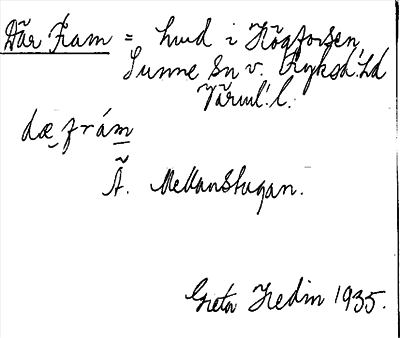 Där Fram = hmd i Högforsen
Sunne Sn v. Fryksd. hd
Värml. l.
dæ fràm
Ã. Mellanstugan.
Greta Hedin 1935.